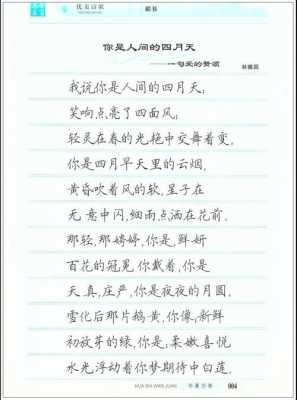 优美诗歌
楷书
你是人间的四月天
——一句爱的赞颂
林徽因
我说你是人间的四月天;
笑响点亮了四面风;
轻灵在春的光艳中交舞着变。
你是四月早天里的云烟,
黄昏吹着风的软,星子在
无意中闪,细雨点洒在花前。
那轻,那娉婷,你是,鲜妍
百花的冠冕你戴着,你是
天真,庄严,你是夜夜的月圆。
雪化后那片鹅黄,你像;新鲜
初放芽的绿,你是;柔嫩喜悦
水光浮动着你梦期待中白莲。
HUA XIA WAN JUAN
华夏万卷
004